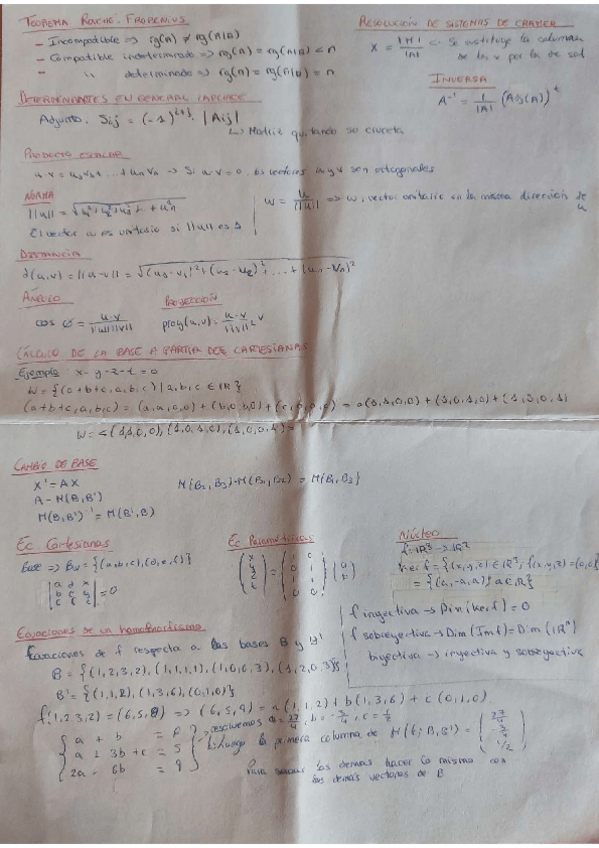 TEOREMA ROUCHÉ-FROBENIUS
- Incompatible => rg(A) ≠ rg(A|B)
- Compatible indeterminado => rg(A) = rg(A|B) < n
- " determinado => rg(A) = rg(A|B) = n
RESOLUCIÓN DE SISTEMAS DE CRAMER
Se sustituye la columna
de las v por la de sol
INVERSA
A⁻¹ = 1/|A| (Adj(A))ᵗ
DETERMINANTES EN GENERAL LAPLACE
Adjunto. Sij = (-1)^(i+j) · |Aij|
↳ Matriz quitando su cruceta
PRODUCTO ESCALAR
u·v = u₁v₁ + ... + uₙvₙ => Si u·v = 0, los vectores u y v son ortogonales
NORMA
||u|| = √(u₁² + u₂² + u₃² + ... + uₙ²)
El vector u es unitario si ||u|| es 1
w = u/||u|| => w, vector unitario en la misma dirección de u
DISTANCIA
d(u,v) = ||u-v|| = √((u₁-v₁)² + (u₂-v₂)² + ... + (uₙ-vₙ)²)
ÁNGULO
cos Ø = u·v/||u||||v||
PROYECCIÓN
proy(u,v) = u·v/||v||² v
CÁLCULO DE LA BASE A PARTIR DE CARTESIANAS
Ejemplo x-y-z-t=0
W = {(a+b+c,a,b,c) | a,b,c ∈ IR}
(a+b+c,a,b,c) = (a,a,0,0) + (b,0,b,0) + (c,0,0,c) = a(1,1,0,0) + (1,0,1,0) + (1,0,0,1)
W = <(1,1,0,0),(1,0,1,0),(1,0,0,1)>
CAMBIO DE BASE
X' = AX
A = M(B,B')
M(B,B')⁻¹ = M(B',B)
M(B₂,B₃)·M(B₁,B₂) = M(B₁,B₃)
Ec. Cartesianas
Base => Bw = {(a,b,c),(d,e,f)}
= 0
Ec Paramétricas
Núcleo
f: IR³ -> IR²
Ker f = {(x,y,z) ∈ IR³; f(x,y,z) = (0,0)}
= {(a,-a,a); a ∈ IR}
f inyectiva -> Dim(Ker f) = 0
f sobreyectiva -> Dim(Imf) = Dim(IRⁿ)
biyectiva -> inyectiva y sobreyectiva
Ecuaciones de un homomorfismo
Ecuaciones de f respecto a las bases B y B'
B = {(1,2,3,2),(1,1,1,1),(1,0,0,3),(1,2,0,3)}
B' = {(1,1,2),(1,3,6),(0,1,0)}
f(1,2,3,2) = (6,5,9) => (6,5,9) = a(1,1,2) + b(1,3,6) + c(0,1,0)
a + b = 6
a + 3b + c = 5
2a + 6b = 9
resolvemos a = 27/4, b = -3/4, c = 1/2
Luego la primera columna de M(f; B,B') = (27/4, -3/4, 1/2)
Para sacar las demás hacer lo mismo con
los demás vectores de B